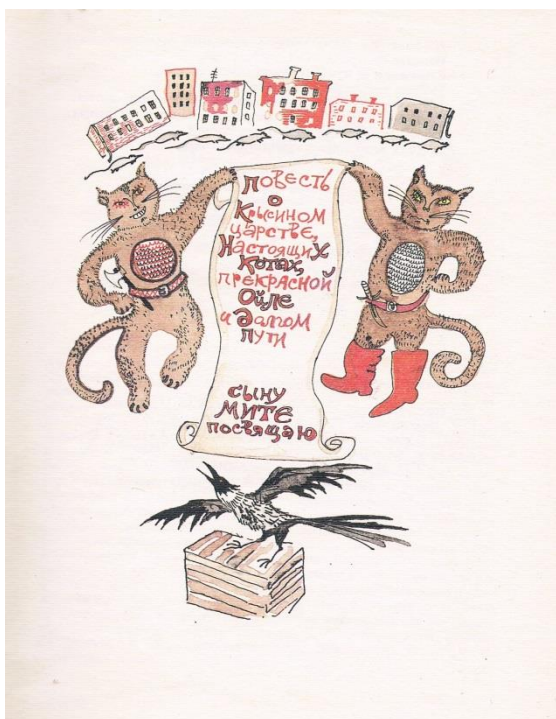 Повесть
о
Крысином
царстве,
Настоящих
Котах,
прекрасной
Ойле
и Далом
пути
сыну
МИТЕ
посвящаю